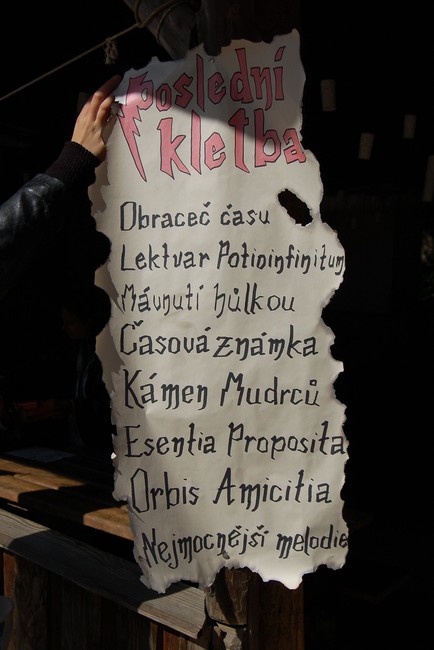 poslední
kletba
Obraceč času
Lektvar Potioinfinitum
Mávnutí hůlkou
Časová známka
Kámen Mudrců
Esentia Proposita
Orbis Amicitia
Nejmocnější melodie